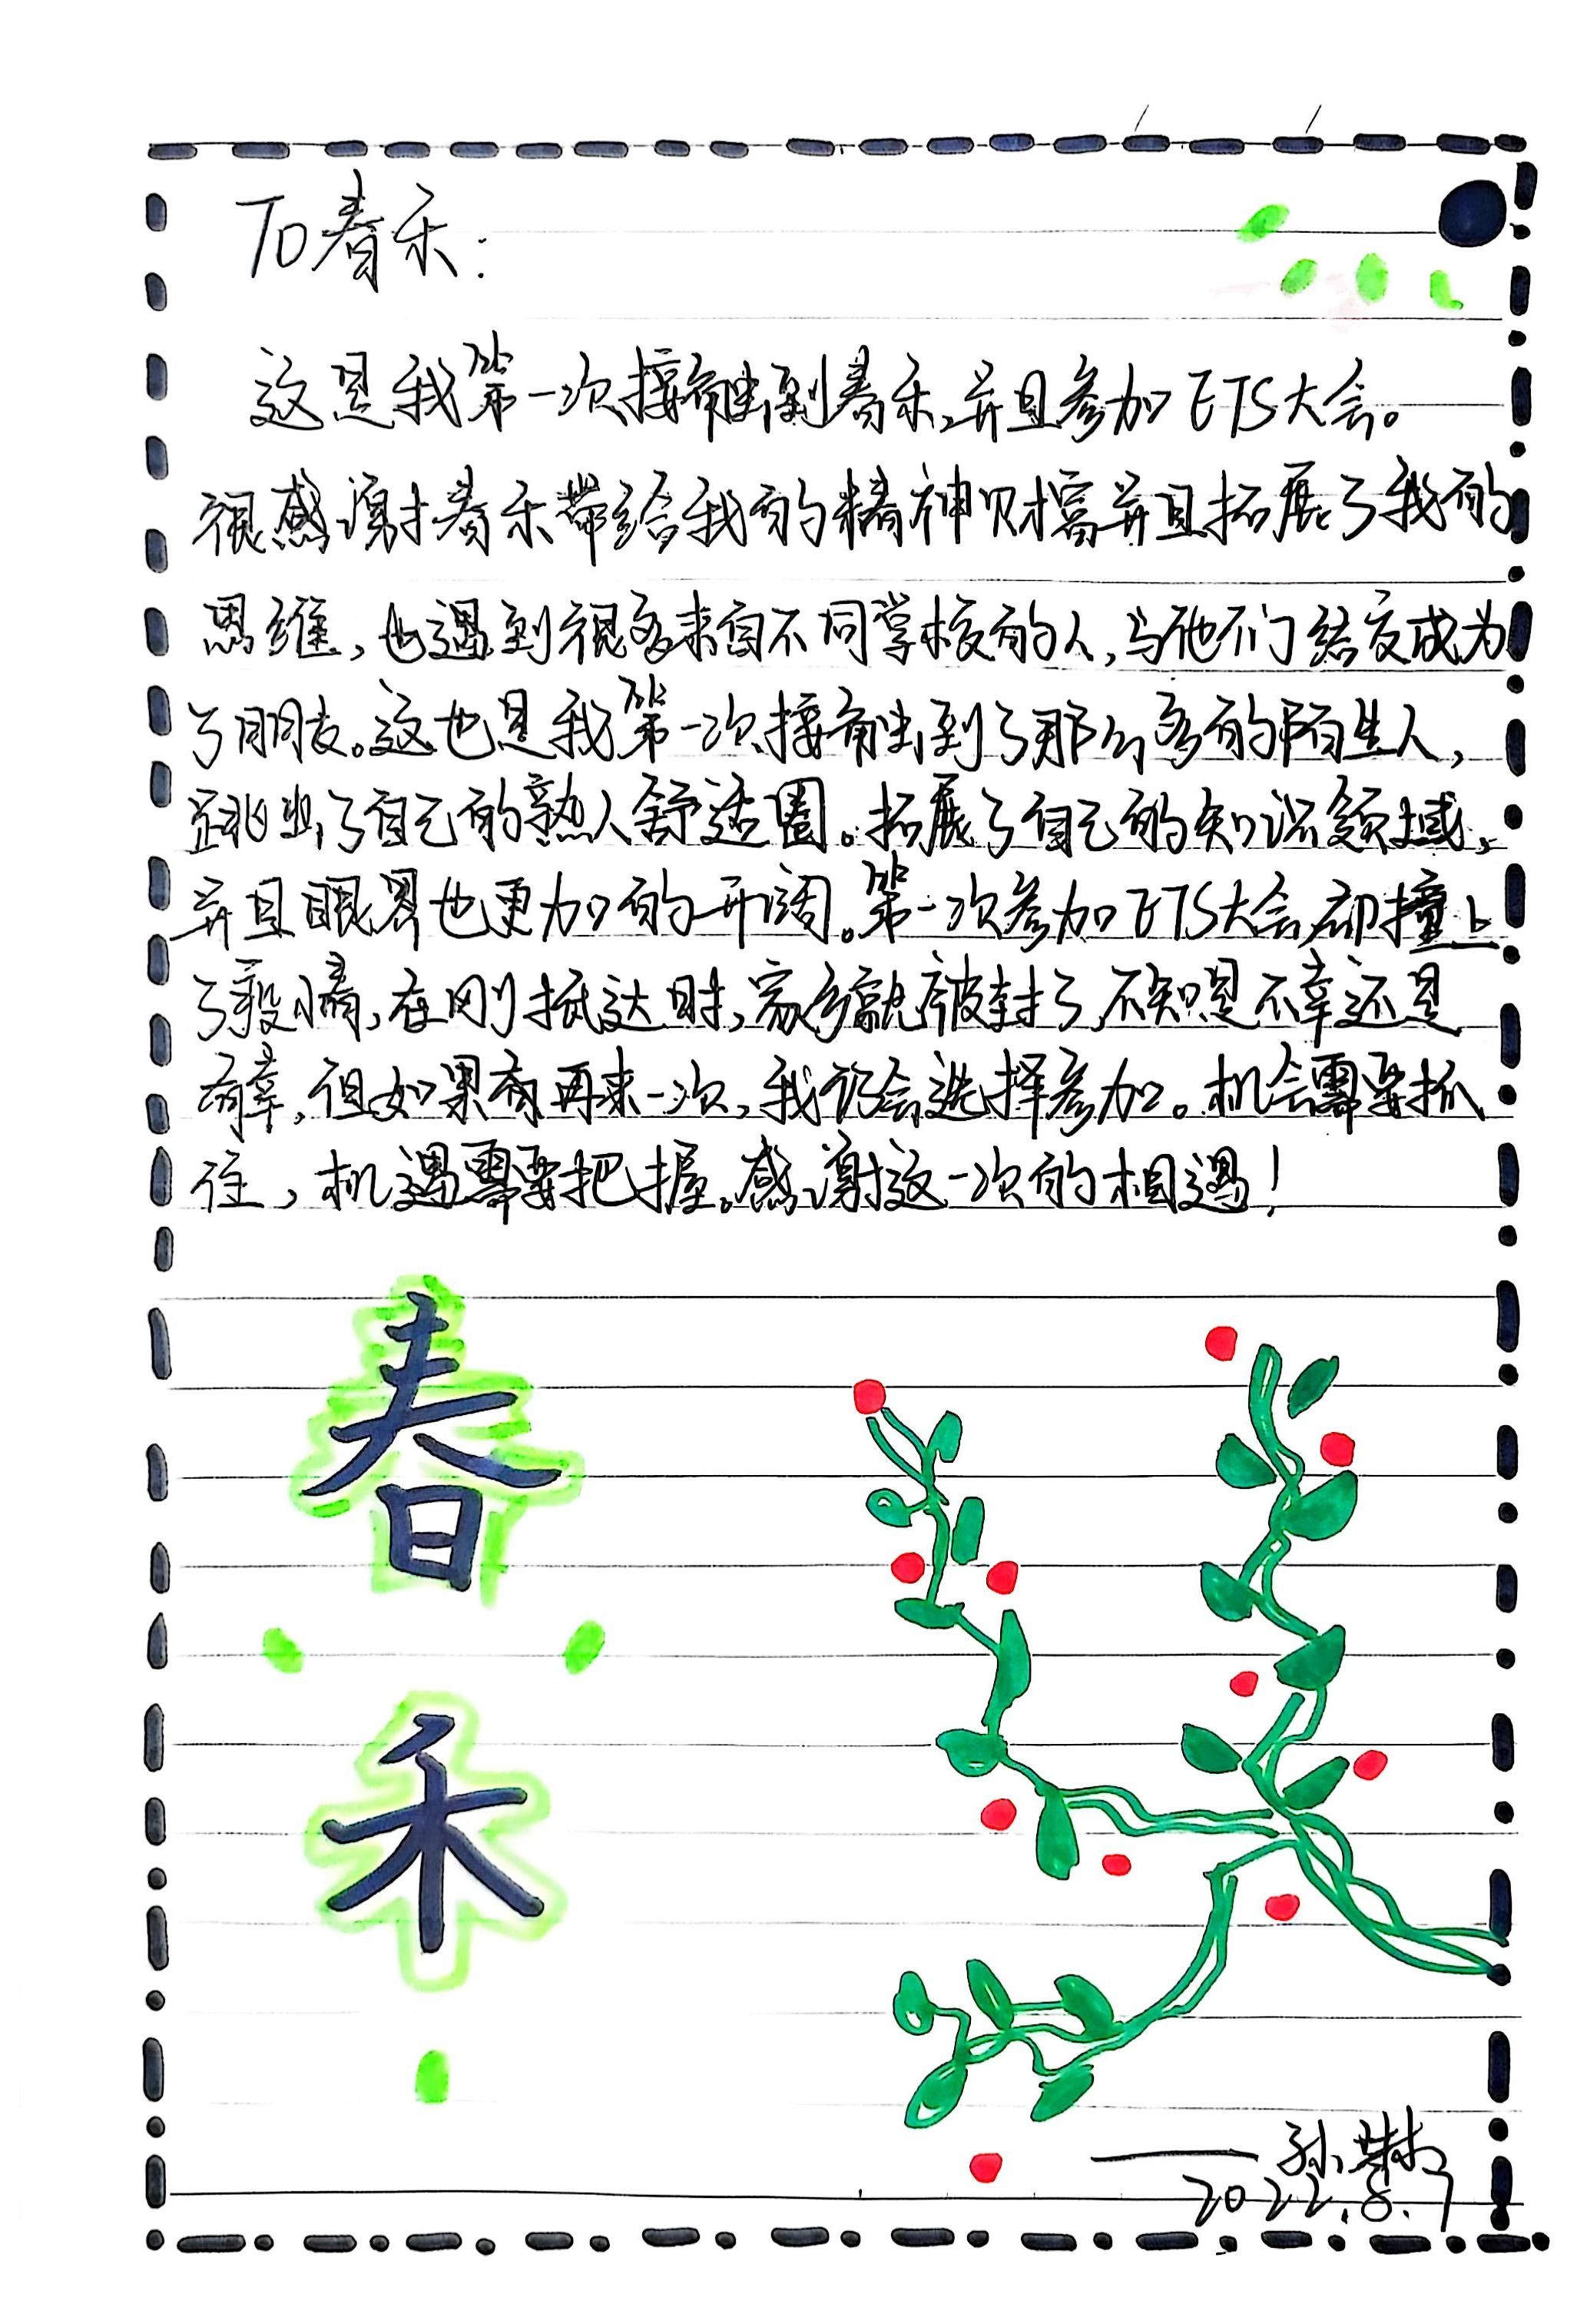 To春禾:
这是我第一次接触到春禾,并且参加ETS大会。
很感谢春禾带给我的精神财富并且拓展了我的
思维,也遇到很多来自不同学校的人,与他们结友成为
了朋友。这也是我第一次接触到了那么多的陌生人,
跳出了自己的熟人舒适圈。拓展了自己的知识领域,
并且眼界也更加的开阔。第一次参加ETS大会,却撞上
了疫情,在刚抵达时,家乡就被封了,不知是不幸还是
有幸,但如果有再来一次,我仍会选择参加。机会需要抓
住,机遇需要把握。感谢这一次的相遇!
春
禾
——孙
2022.8.7